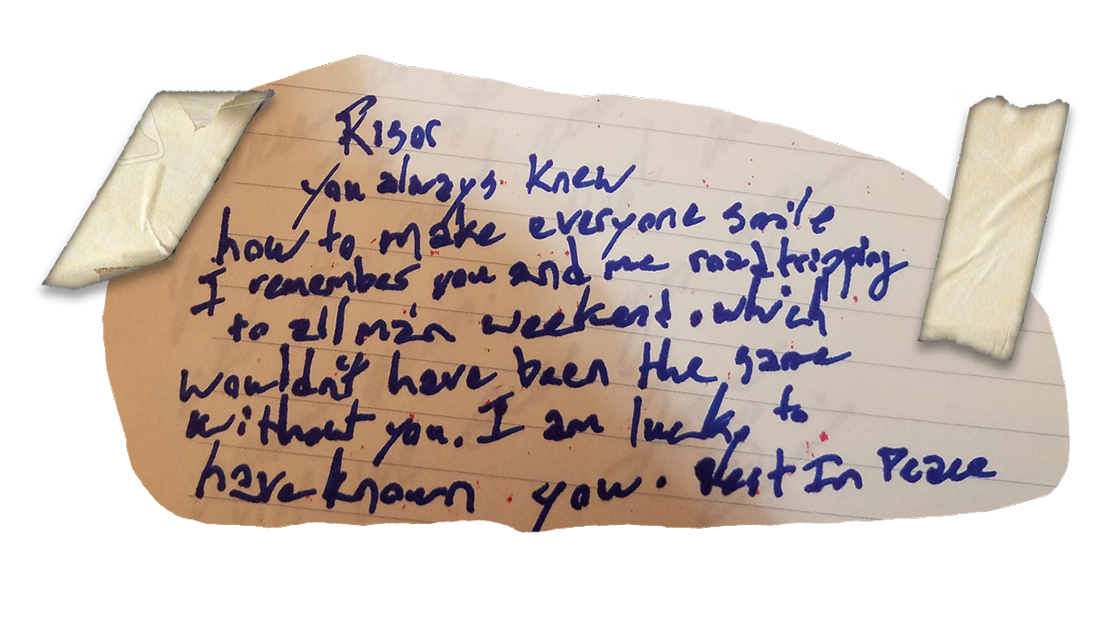 Risor
you always knew
how to make everyone smile
I remember you and me roadtripping
to all man weekend. which
wouldn't have been the same
without you. I am lucky to
have known you. Rest In Peace